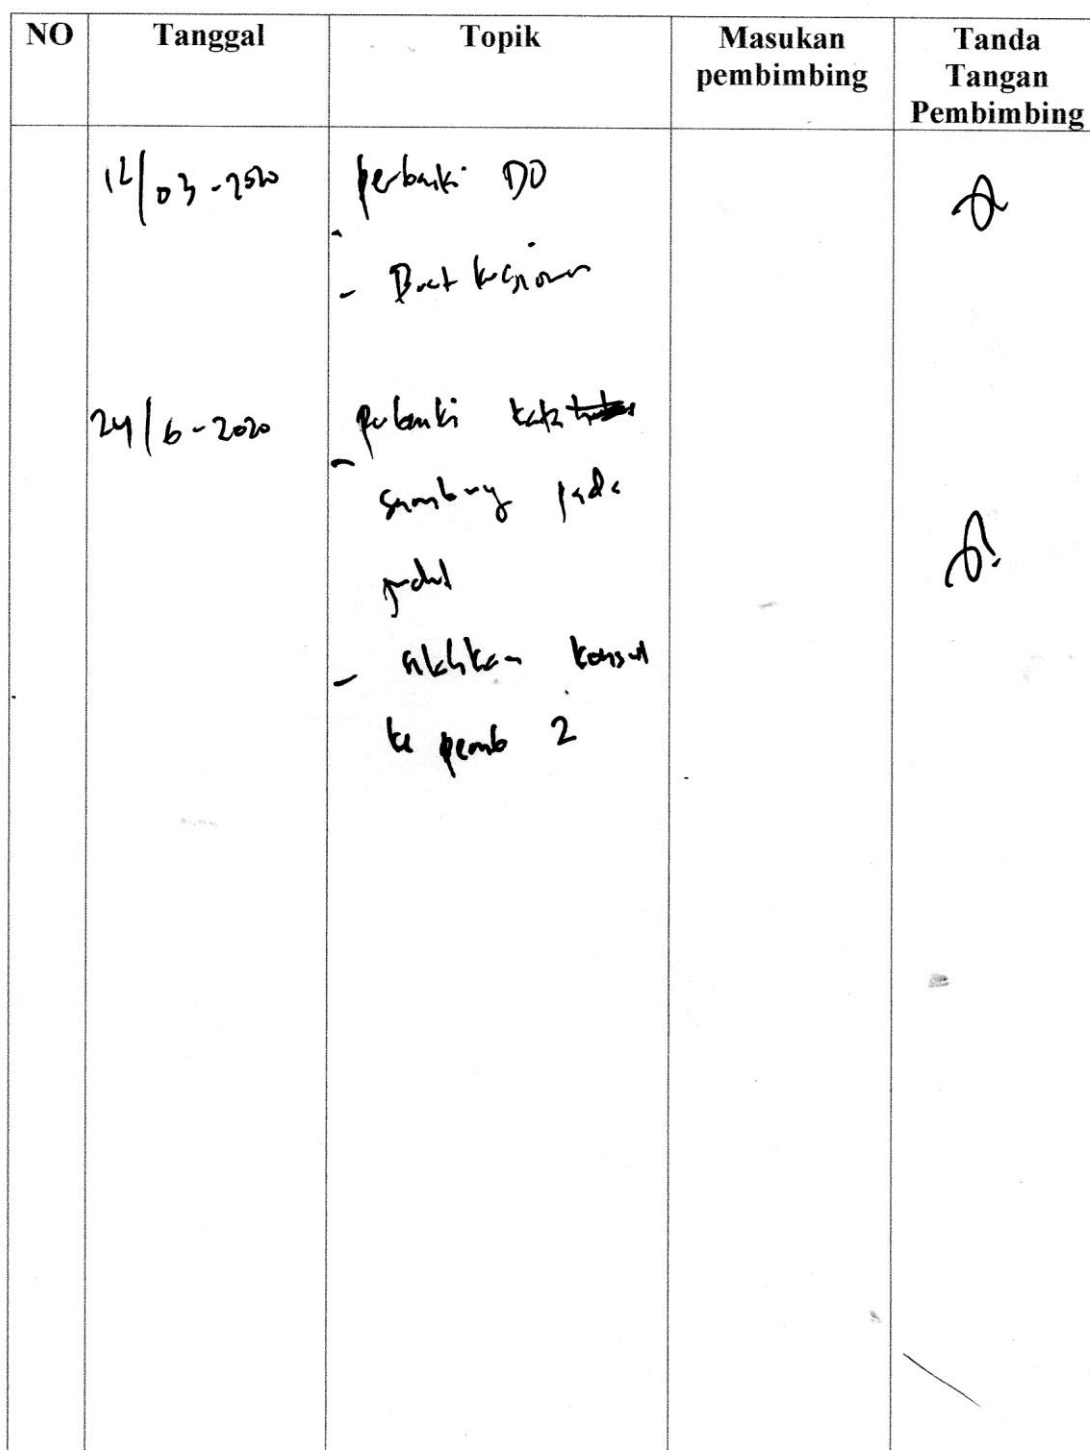 NO Tanggal Topik Masukan pembimbing Tanda Tangan Pembimbing
12/03-2020 perbaiki DO
- Buat kusioner
24/6-2020 perbaiki kata
- sambung pada
judul
- silahkan konsul
ke pemb 2